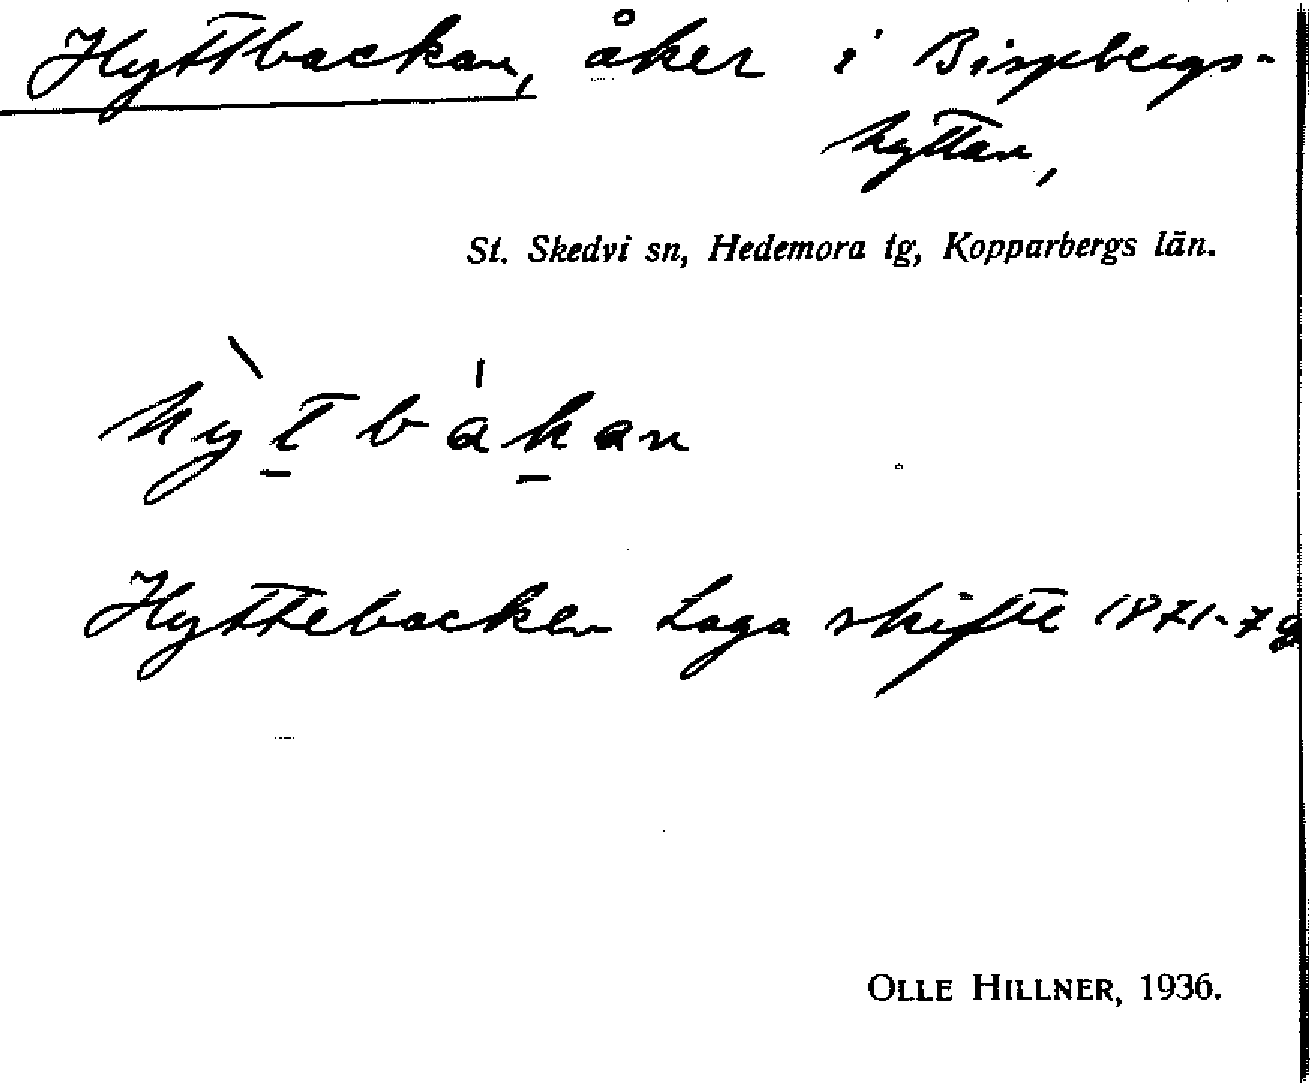 Hyttbackan, åker i Bispbergs-
hyttan,
St. Skedvi sn, Hedemora tg, Kopparbergs län.
hỳt̠bák̠an
Hyttebacken Laga skifte 1871-79
OLLE HILLNER, 1936.